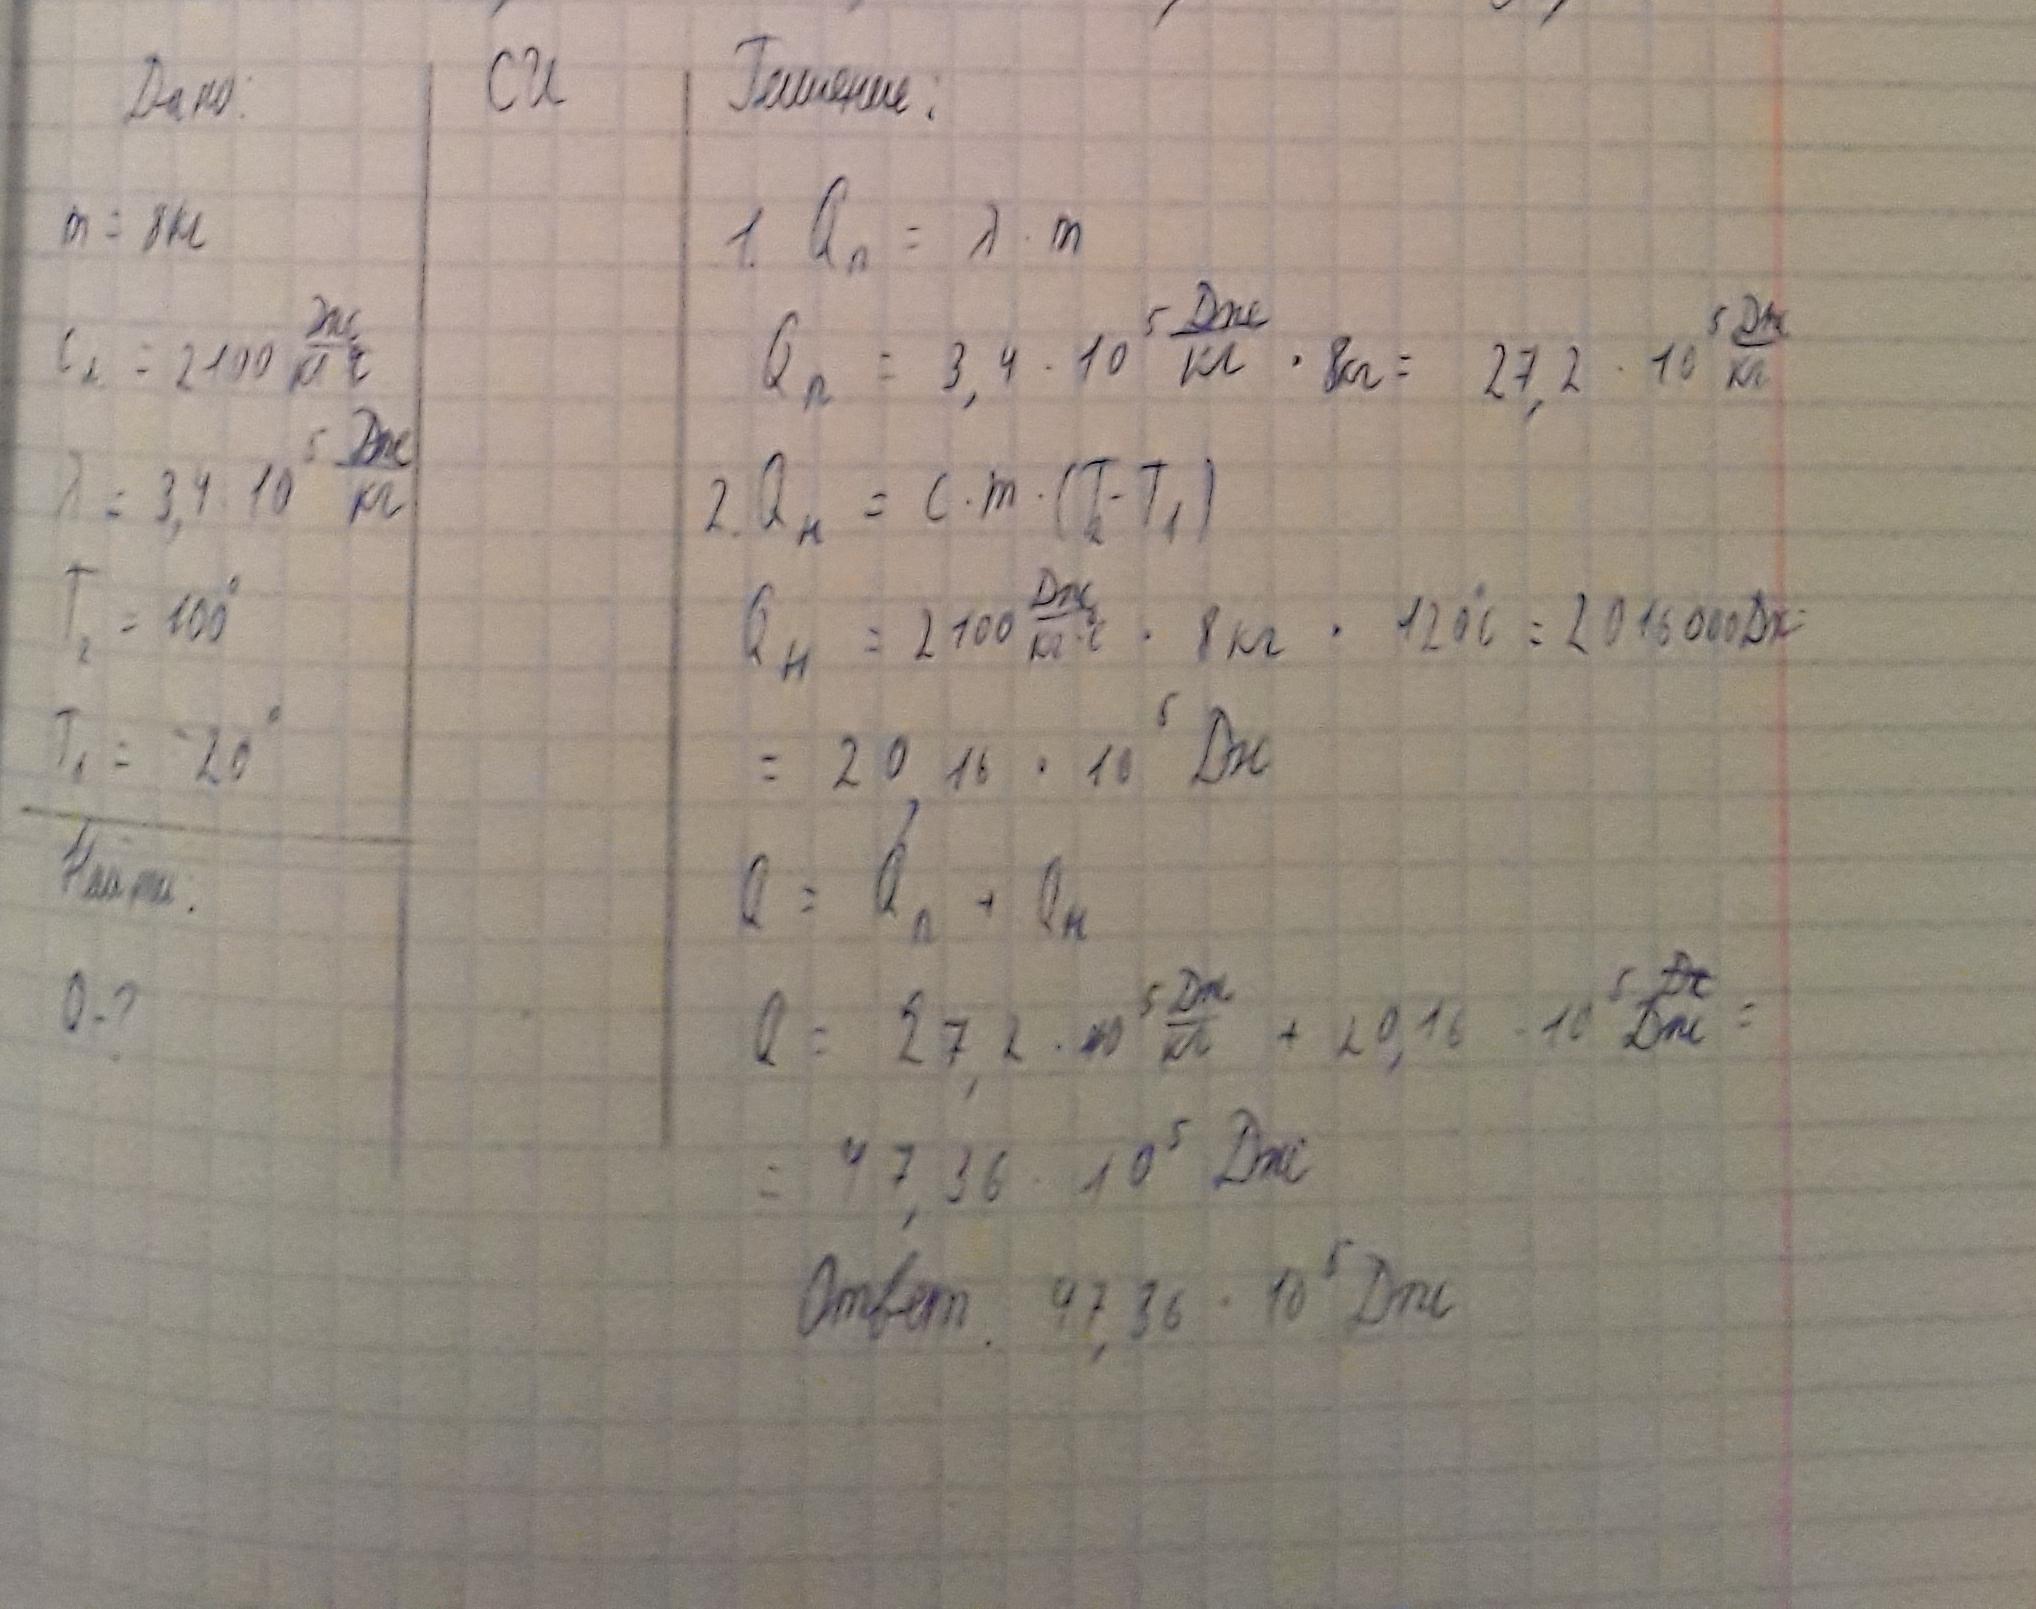 Дано:
СИ
Решение:
m = 8 кг
c₂ = 2100 Дж/кг °C
λ = 3,4 · 10⁵ Дж/кг
T₂ = 100°
T₁ = -20°
Найти:
Q-?
1. Qп = λ · m
Qп = 3,4 · 10⁵ Дж/кг · 8кг = 27,2 · 10⁵ Дж/кг
2. Qн = c · m · (T₂-T₁)
Qн = 2100 Дж/кг·°C · 8 кг · 120°C = 2016000Дж=
= 20,16 · 10⁵ Дж
Q = Qп + Qн
Q = 27,2 · 10⁵ Дж/кг + 20,16 · 10⁵ Дж =
= 47,36 · 10⁵ Дж
Ответ. 47,36 · 10⁵ Дж